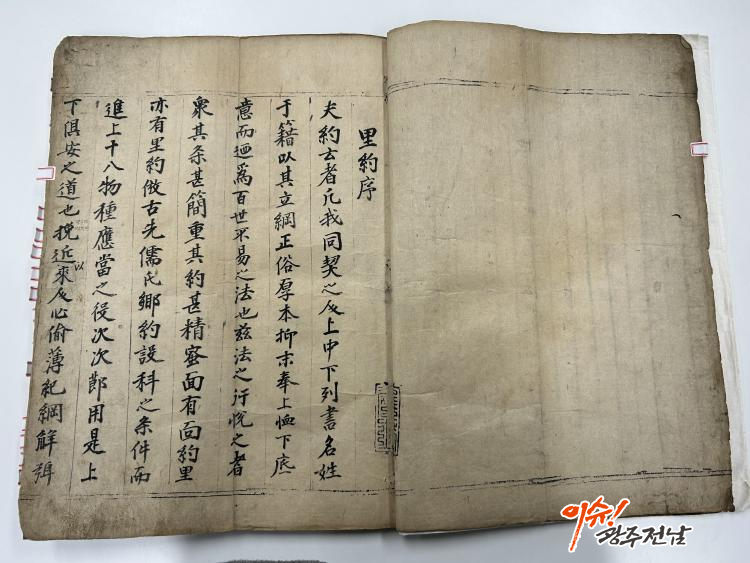 里約序
夫約玄者凡我同契之民上中下列書名姓
于籍以其立綱正俗厚本抑末奉上恤下底
意而廼爲百世不易之法也玆法之行悅之者
衆其条甚簡重其約甚精密面有面約里
亦有里約倣古先儒氏鄉約設科之条件而
進上十八物種應當之役次次節用是上
下俱安之道也挽近以來民心偷薄紀綱解弛
이슈!
광주전남